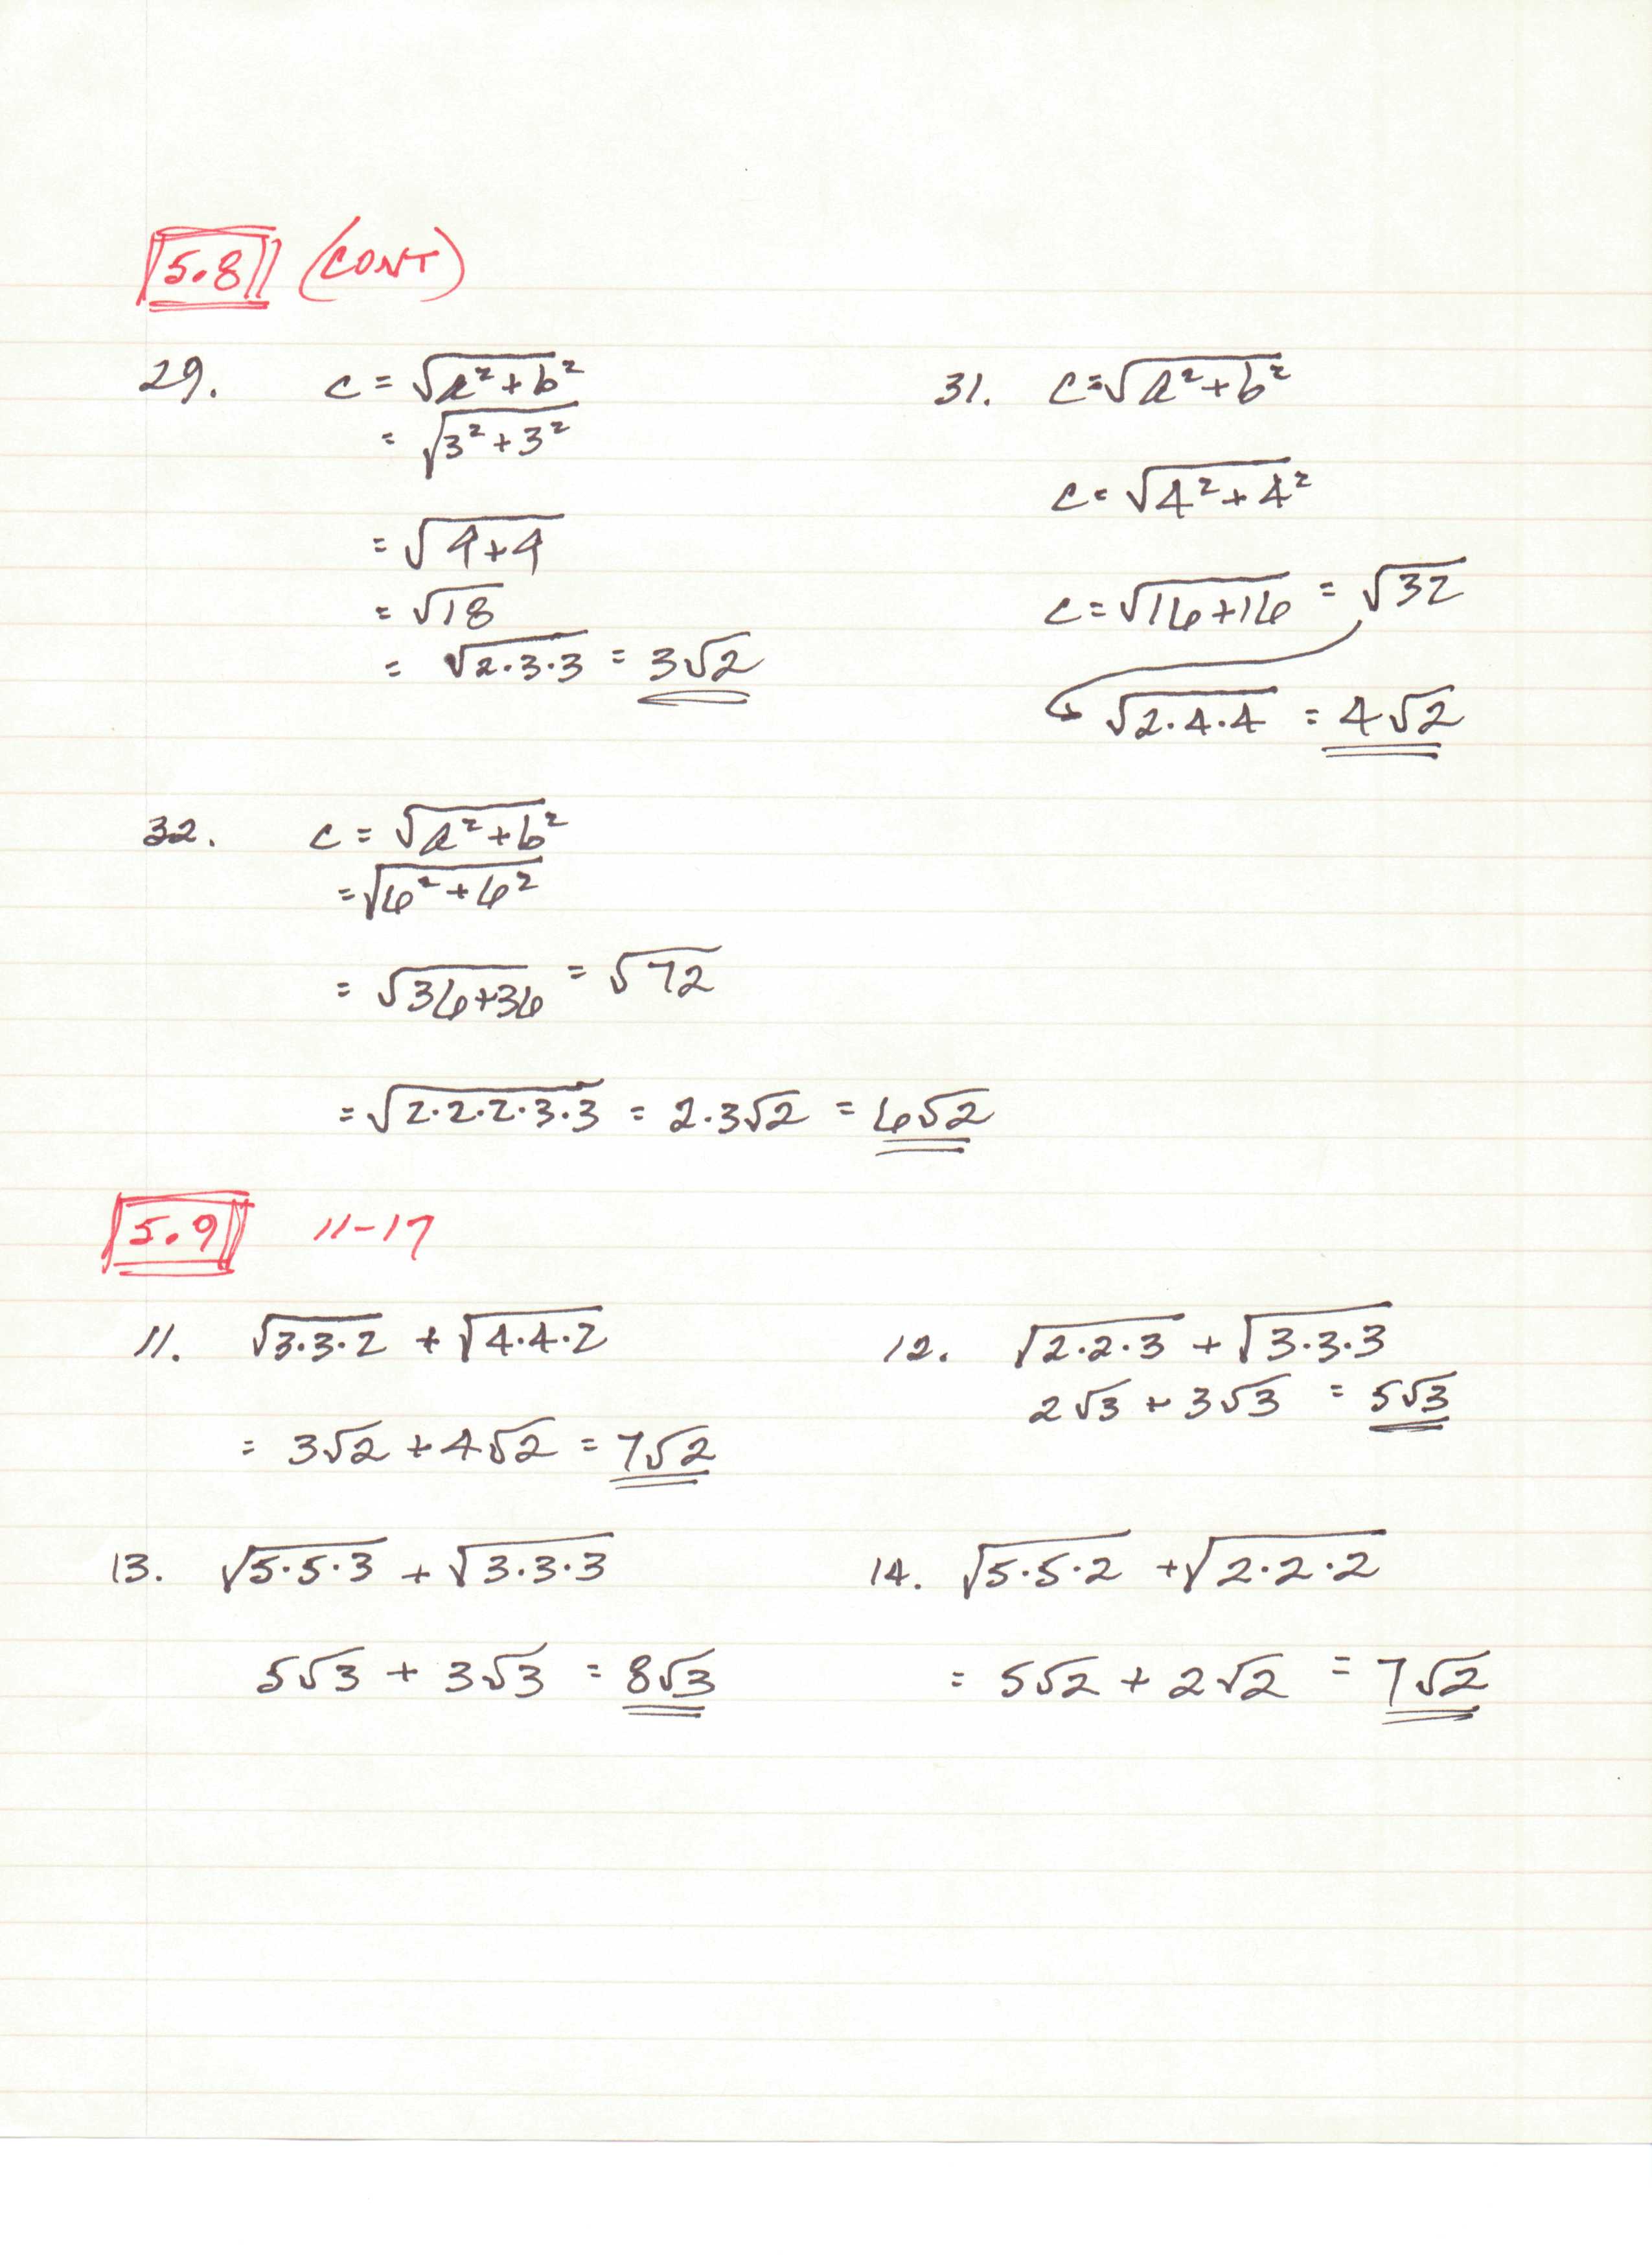 5.8 (CONT)
29. c = √a² + b²
= √3² + 3²
= √9+9
= √18
= √2·3·3 = 3√2
31. c = √a² + b²
c = √4² + 4²
c = √16+16 = √32
√2·4·4 = 4√2
32. c = √a² + b²
= √6² + 6²
= √36+36 = √72
= √2·2·2·3·3 = 2·3√2 = 6√2
5.9 11-17
11. √3·3·2 + √4·4·2
= 3√2 + 4√2 = 7√2
12. √2·2·3 + √3·3·3
2√3 + 3√3 = 5√3
13. √5·5·3 + √3·3·3
5√3 + 3√3 = 8√3
14. √5·5·2 + √2·2·2
= 5√2 + 2√2 = 7√2